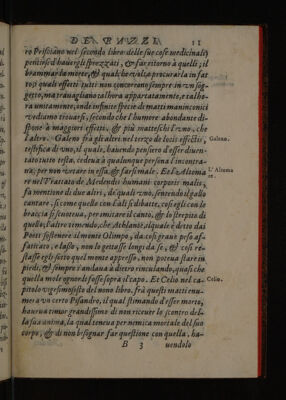 DE' PAZZI. 11
ro Prisciano nel secondo libro delle sue cose medicinali;
pentirsi d'hauergli sprezzati, & far ritorno à quelli; il
bramar la morte, & qualche volta procurarla in fat
to; i quali effetti tutti non concorrano sempre in vn sog-
getto, ma trauagliano talhora appartatamente, e talho
ra vnitamente, onde infinite specie di matti maninconici
vediamo trouarsi, secondo che l'humore abondante di-
spone à maggiori effetti, & più matteschi l'vno, che
l'altro. Galeno frà gli altri nel terzo de locis affectis,
testifica di vno, il quale, hauendo pensiero d'esser diuen-
tato tutto testa, cedeua à qualunque persona l'incontra-
ua; per non vrtare in essa, & farsi male. Et l'Altoma
re nel Trattato de Medendis humani corporis malis,
fa mentione di due altri, de' quali vno, sentendo il gallo
cantare, si come quello con l'ali si dibatte, così egli con le
braccia si scuoteua, per imitare il canto, & lo strepito di
quello; l'altro timendo, che Athlante, al quale è detto da
Poeti sostenere il monte Olimpo, da così graue peso af-
faticato, e lasso, non le gettasse longi da se, & così re-
stasse egli sotto quel monte oppresso, non poteua stare in
piedi, & sempre s'andaua à dietro rinculando, quasi che
quella mole ogn'ora li fosse sopra il capo. Et Celio nel ca-
pitolo vigesimosesto del nono libro, frà questi matti enu-
mera vn certo Pisandro, il qual stimando d'esser morto,
haueua timor grandissimo di non riceuer lo scontro del-
la sua anima, la qual teneua per nemica mortale del suo
corpo, & di non bisognar far questione con quella, ha-
B 3 uendolo
Galeno.
L'Altoma
re.
Celio.